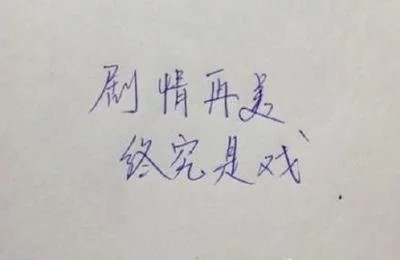 剧情再美
终究是戏